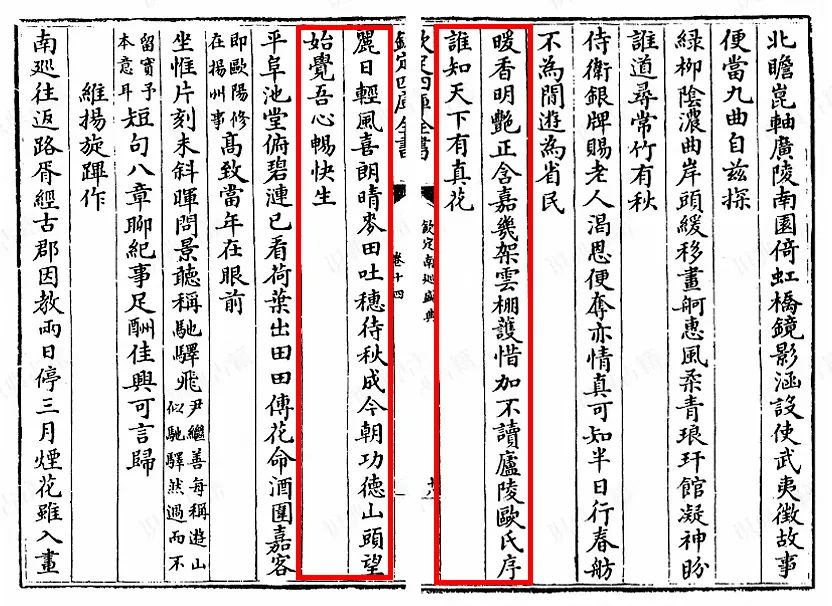 北瞻崑軸廣陵南園倚虹橋鏡影涵設使武夷徵故事
便當九曲自兹探
綠柳陰濃曲岸頭緩移畫舸惠風柔青琅玕館凝神盼
誰道尋常竹有秋
侍衛銀牌賜老人渴恩便奪亦情真可知半日行春舫
不為閒遊為省民
暖香明艷正含嘉幾架雲棚護惜加不讀廬陵歐氏序
誰知天下有真花
欽定四庫全書
欽定南巡盛典
卷十四
十八
麗日輕風喜朗晴麥田吐穗待秋成今朝功德山頭望
始覺吾心暢快生
平阜池堂俯碧漣已看荷葉出田田傳花命酒圍嘉客
即歐陽修
在揚州事
高致當年在眼前
坐惟片刻未斜暉問景聽稱馳驛飛
尹繼善每稱遊山
似馳驛然過而不
留實予
本意耳
短句八章聊紀事足酬佳興可言歸
維揚旋蹕作
南巡往返路胥經古郡因教兩日停三月煙花雖入畫